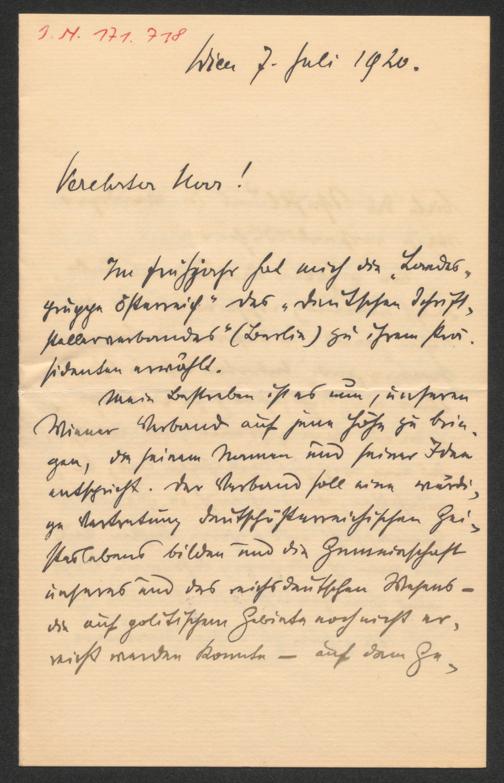 J. N. 171.718
Wien 7. Juli 1920.
Verehrter Herr!
Im Frühjahr hat mich die „Landes-
gruppe Österreich" des „deutschen Schrift-
stellerverbandes" (Berlin) zu ihrem Prä-
sidenten erwählt.
Mein Bestreben ist es nun, unseren
Wiener Verband auf jene Höhe zu brin-
gen, die seinem Namen und seiner Idee
entspricht. Der Verband soll eine würdi-
ge Vertretung deutschösterreichischen Gei-
steslebens bilden und die Gemeinschaft
unseres und des reichsdeutschen Wesens –
die auf politischem Gebiete noch nicht er-
reicht werden konnte – auf dem Ge-